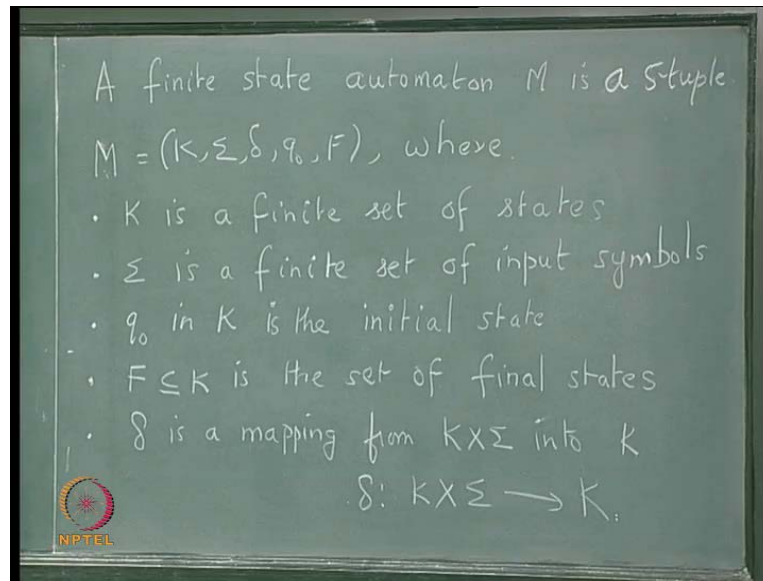 A finite state automaton M is a 5-tuple
M = (K, Σ, δ, q₀, F), where.
. K is a finite set of states
. Σ is a finite set of input symbols
. q₀ in K is the initial state
. F ⊆ K is the set of final states
. δ is a mapping from K X Σ into K
δ: K X Σ → K.
NPTEL